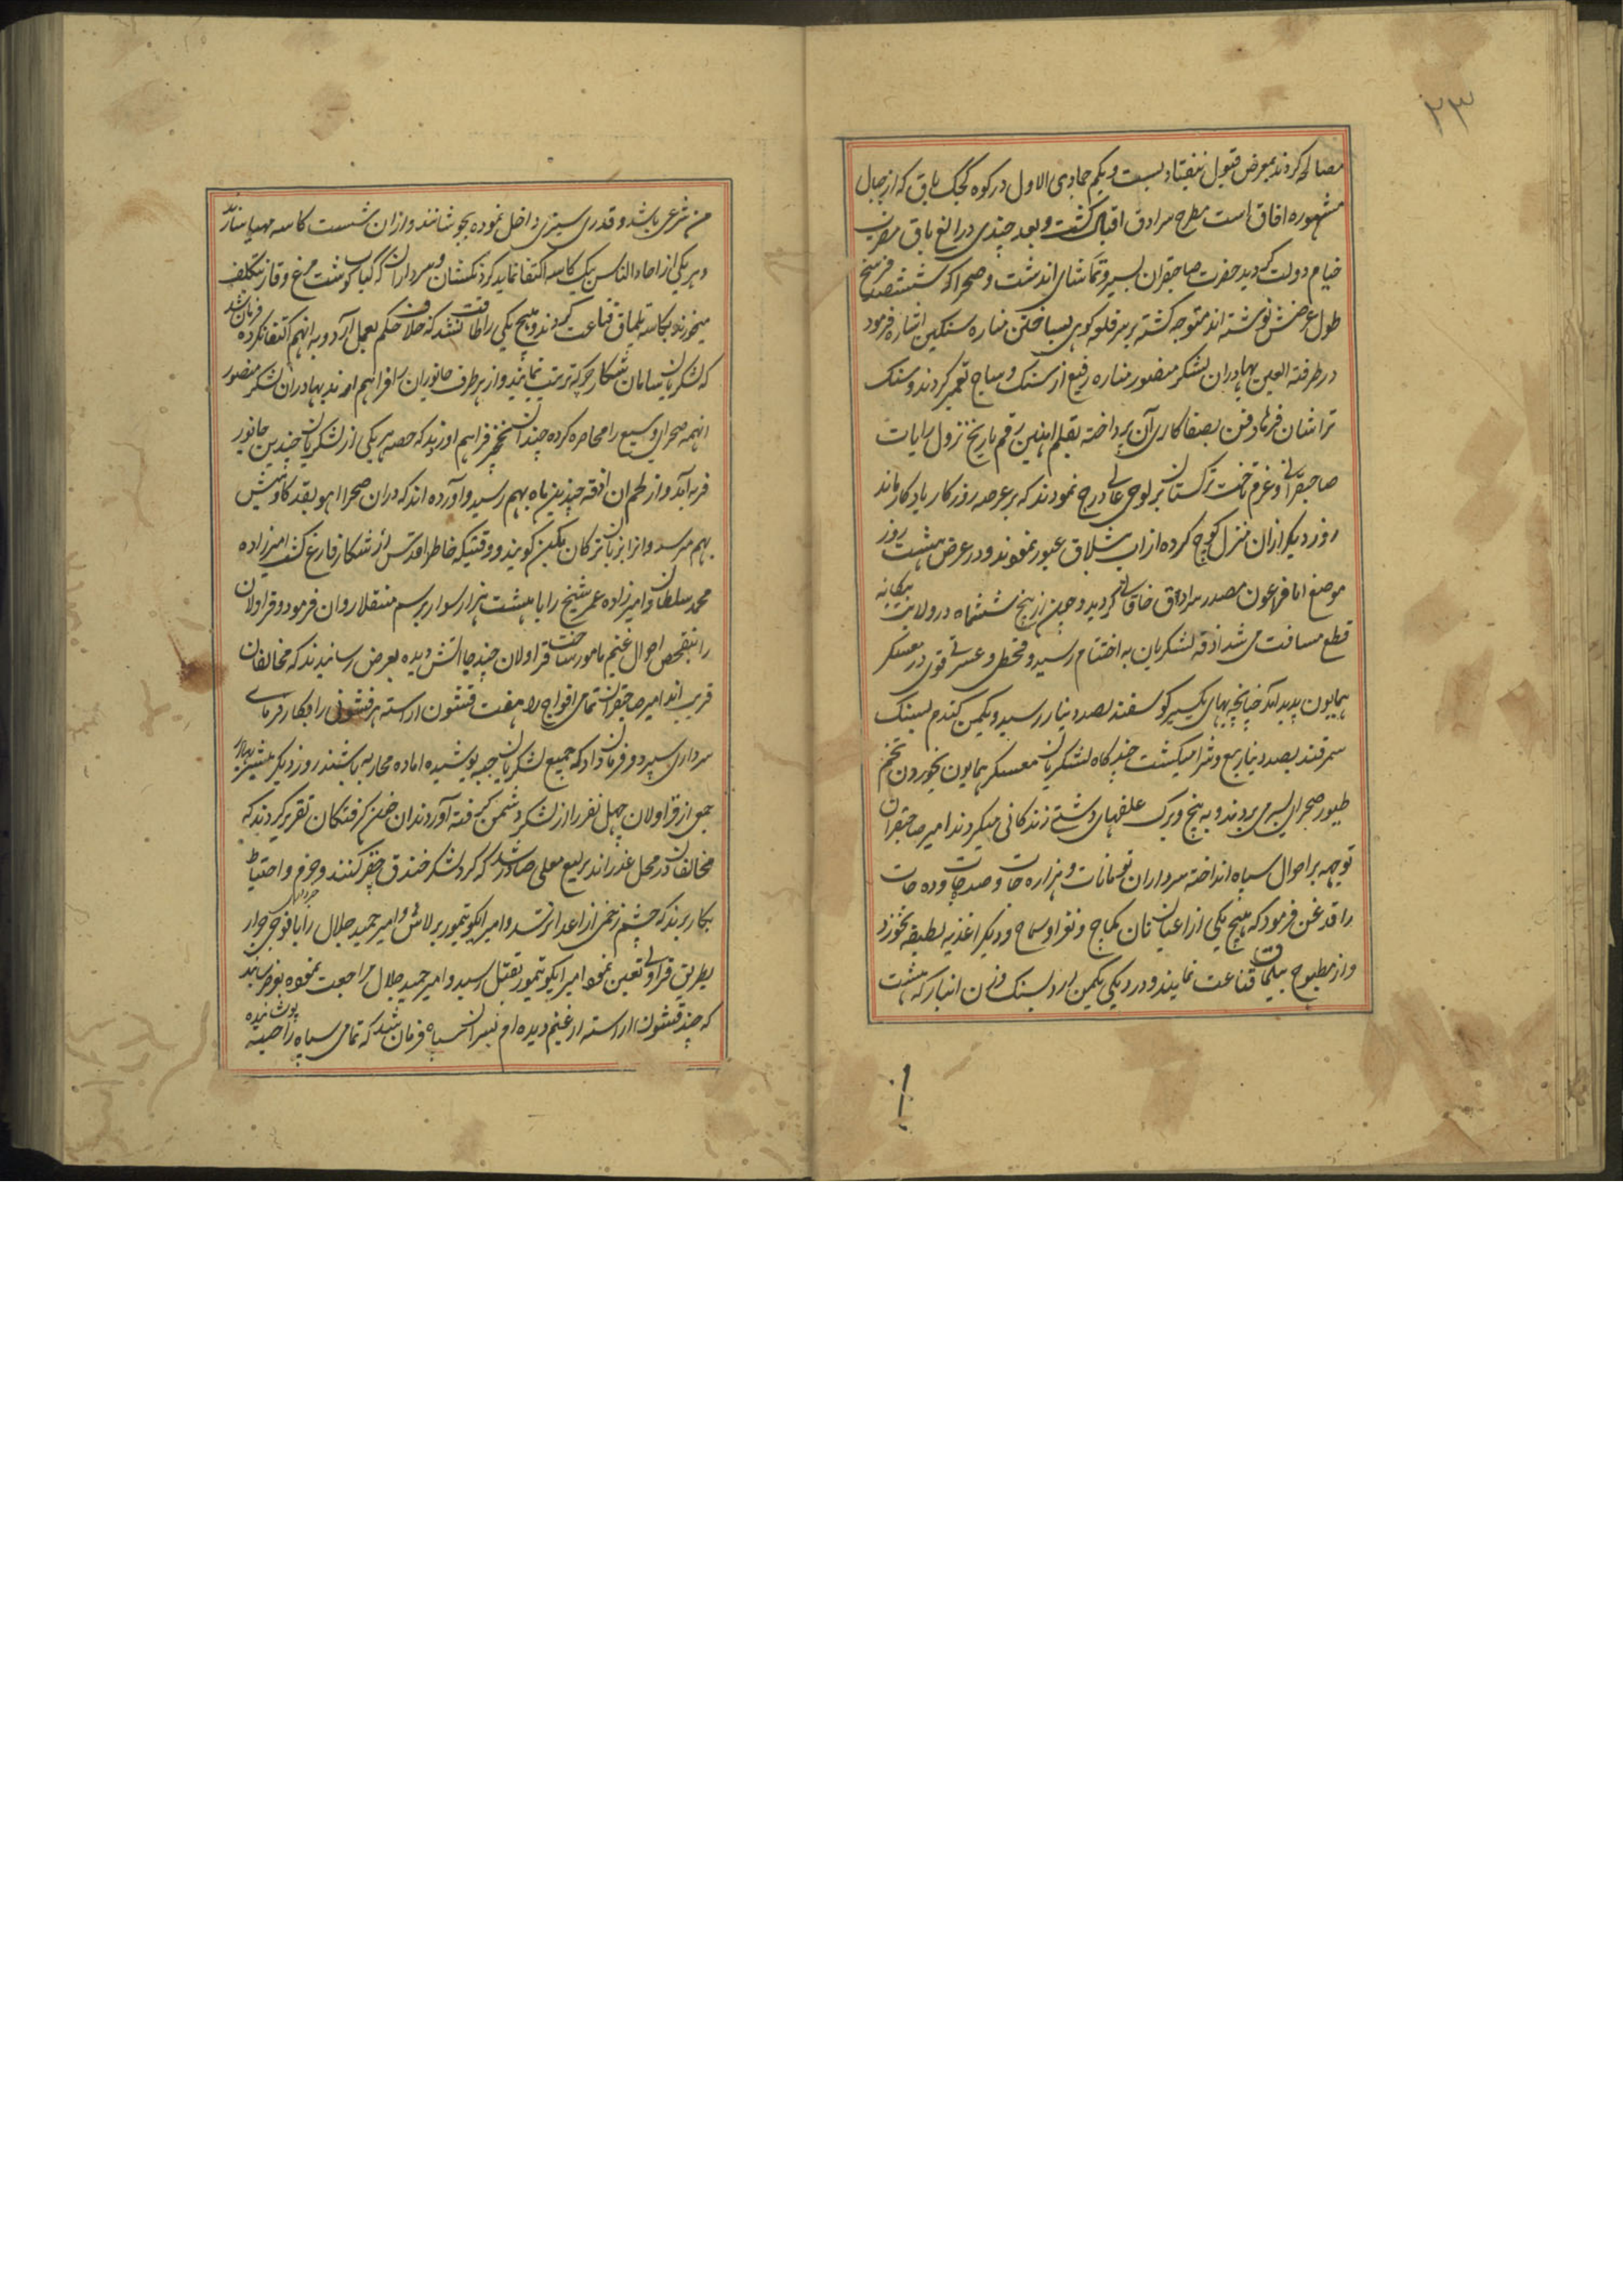 ۲۳
مصالحه کردند بمعرض قبول نیفتاد بیست و یکم جمادی الاول در کوه کجک باق که از جبال
مشهوره افاق است مطرح سرادق اقبال گشت و بعد چندی در الغ باق مضرب
خیام دولت گردید حضرت صاحبقران بسیر و تماشای اندشت و صحرا که ششصد فرسخ
طول عرضش نوشته اند متوجه گشته بر سر قله کوهی بساختن مناره سنگین اشاره فرمود
در طرفته العین بهادران لشکر منصور مناره رفیع از سنک و ساج تعمیر کردند و سنک
تراشان فرهاد فن بصفا کاری آن پرداخته بقلم اهنین رقم تاریخ نزول رایات
صاحبقرانی و عزم تاخت ترکستان بر لوحی عالی درج نمودند که بر عرصه روزکار یادکار ماند
روز دیکر ازان منزل کوچ کرده از اب یثلاق عبور نمودند و در عرض هشت روز
موضع اناقراعون مصدر سرادق خاقانی گردید و چون از پنج ششماه در ولایت بیکانه
قطع مسافت می شد اذقه لشکریان به اختتام رسید و قحطی و عسرتی قوی در معسکر
همایون پدید آمد چنانچه بهای یکسیر کوسفند بصد دینار رسید و یکمن کندم بسنک
سمرقند بصد دینار بیع و شرا میکشت چندکاه لشکریان معسکر همایون بخوردن تخم
طیور صحرایی بسر می بردند و به بیخ و برک علفهای دشتی زندکانی میکردند امیر صاحبقران
توجه بر احوال سپاه انداخته سرداران تومانات و هزاره جات و صدجات و ده جات
را قدغن فرمود که هیچ یکی از اعیان نان کماج و نغز او سماح و دیکر اغذیه لطیفه نخورند
و از مطبوخ بیلماق قناعت نمایند و در دیکی یکمن ارد بسنک وزن انبار که هشت
من شرعی باشد و قدری سبزی داخل نموده بجوشانند و ازان شصت کاسه مهیا سازند
و هر یکی از احاد الناس بیک کاسه اکتفا نماید کردنکشان و سرداران که کباب کوشت مرغ و قاز بتکلف
میخوردند بکاسه بلماق قناعت کردند و هیچ یکی را طاقت نشد که خلاف حکم بعمل آرد و به انهم اکتفا نکرده فرمان شد
که لشکریان سامان شکار جرکه ترتیب نمایند و از هر طرف جانوران را فراهم ارند بهادران لشکر منصور
انهمه صحرای وسیع را محاصره کرده چندان نخجیر فراهم اوردند که حصه هر یکی از لشکریان چندین جانور
فربه آمد و از لحم ان اذقه چندین ماه بهم رسید و آورده اند که دران صحرا اهو بقد کاومیش
بهم میرسد و انرا بزبان ترکان بکین کویند و وقتیکه خاطر اقدس از شکار فارغ کشت امیرزاده
محمد سلطان و امیرزاده عمر شیخ را با هشت هزار سوار برسم منقلا روان فرمود و قراولان
را بتفحص احوال غنیم مامور ساخت قراولان چند جا اتش دیده بعرض رسانیدند که مخالفان
قریب اند امیر صاحبقران تمامی افواج را هفت قشون اراسته هر قشونی را بکار فرمای
سرداری سپرد و فرمان داد که جمیع لشکریان جبه پوشیده اماده محاربه باشند روز دیکر پیشتر بهادر
جمعی از قراولان چهل نفر را از لشکر دشمن گرفته آوردند ان خون گرفتکان تقریر کردند که
مخالفان در محل غدر اند یرلیغ معلی صادر شد که کرد لشکر خندق حفر کنند و حزم و احتیاط
بکار برند که چشم زخمی از اعدا نرسد و امیر ایکو تیمور برلاش و امیر حمید جلال را با فوجی جرار
بطریق قراولی تعین نمود امیر ایکو تیمور بقتل رسید و امیر حمید جلال مراجعت نموده بعرض رسانید
که چند قشون اراسته از غنیم دیده ام فرمان شد که تمامی سپاه را جیبه پوشانیده